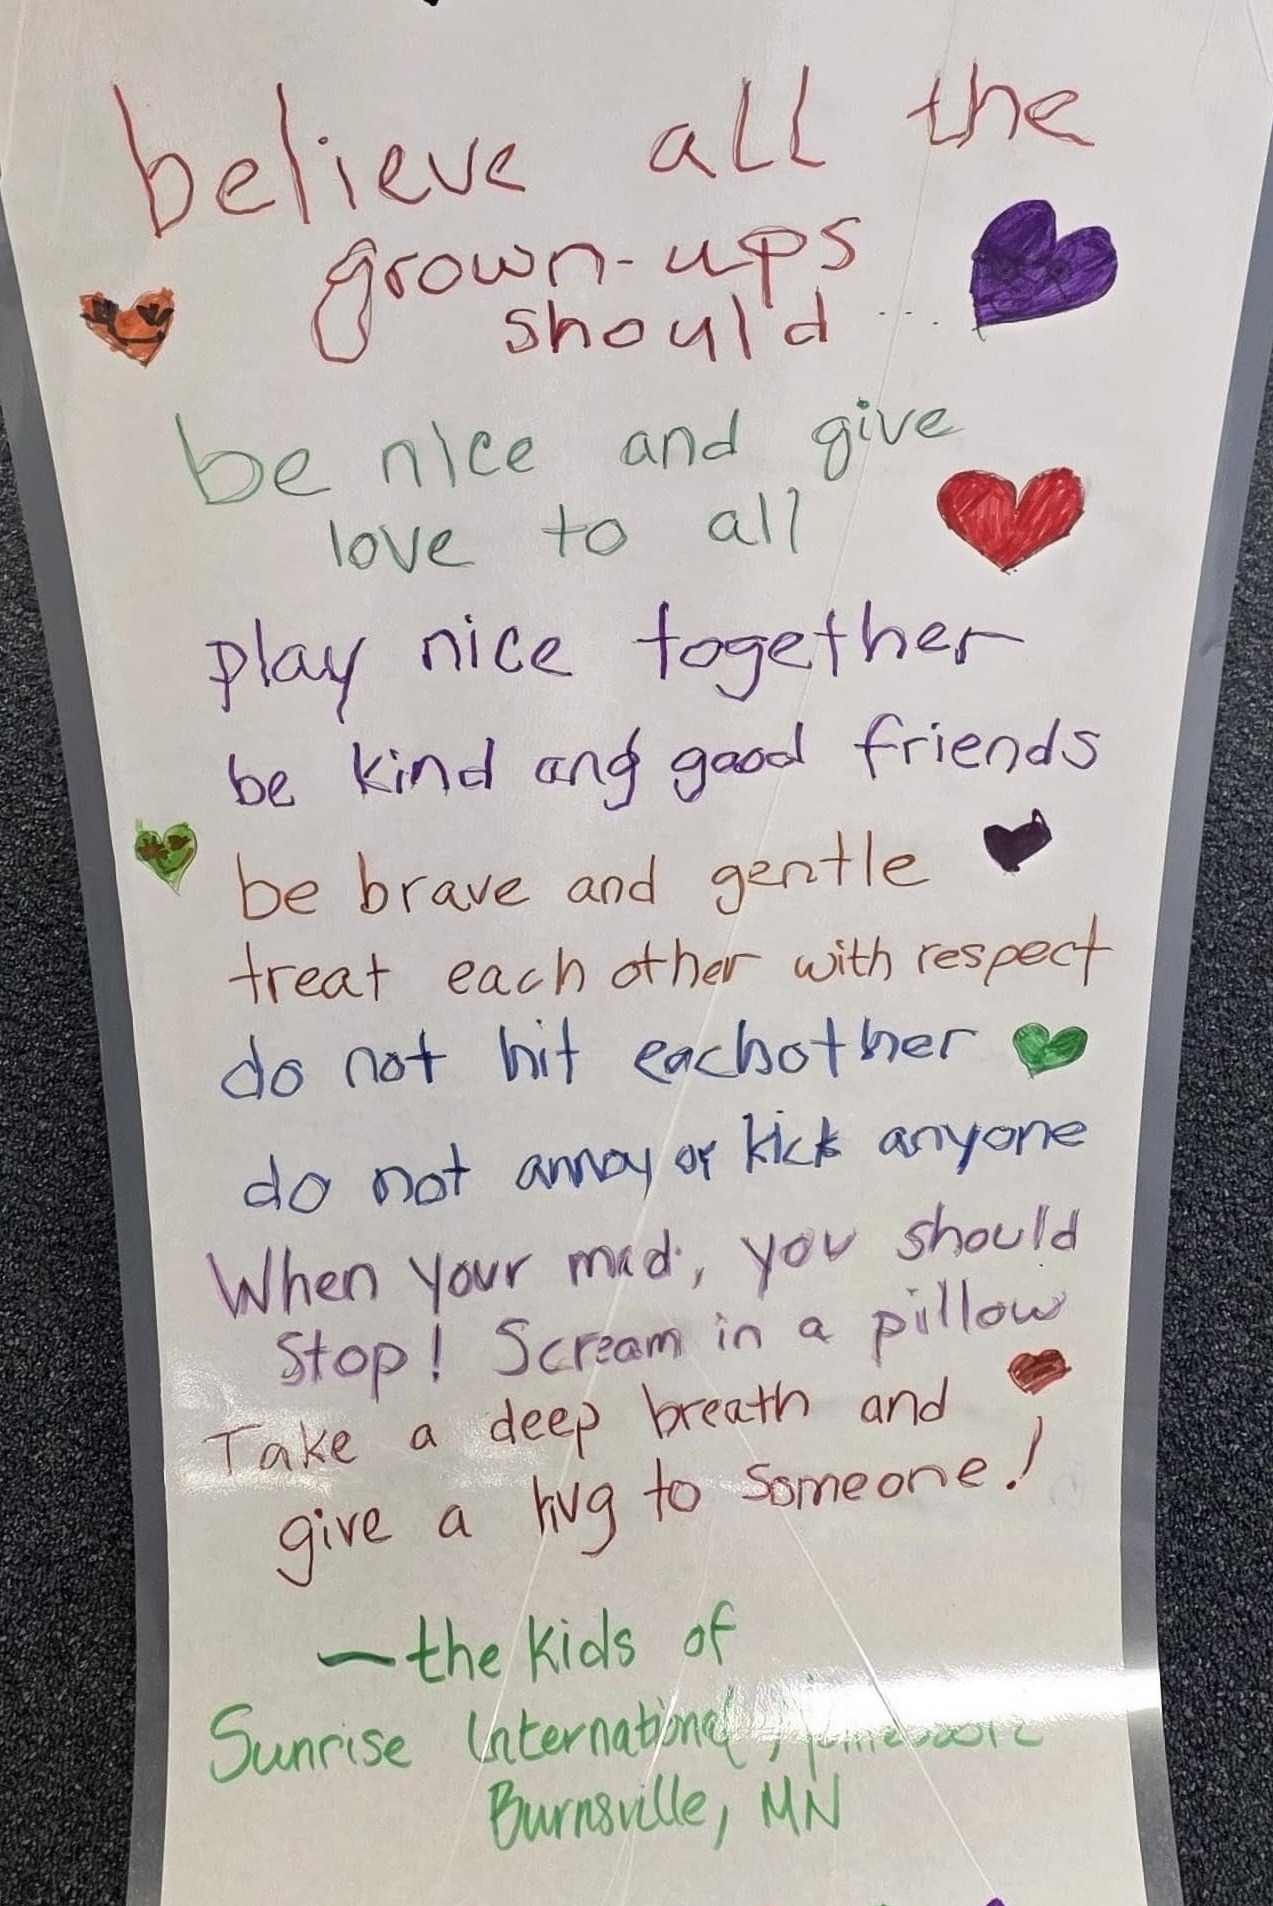 believe all the
grown-ups
should ...
be nice and give
love to all
play nice together
be kind and good friends
be brave and gentle
treat each other with respect
do not hit eachother
do not annoy or kick anyone
When your mad, you should
Stop! Scream in a pillow
Take a deep breath and
give a hug to someone!
—the kids of
Sunrise International,
Burnsville, MN